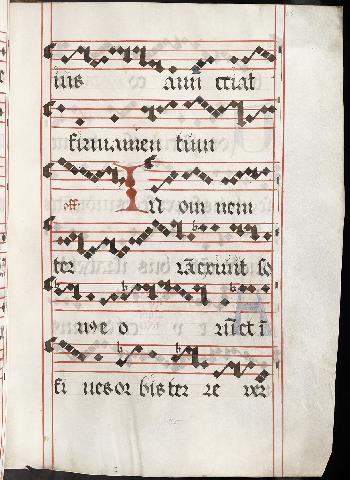 ius annu ciat
firmamen tum
In om nem
ter rā exiuit so
nus e o rū et ī
fi nes or bis ter re ver